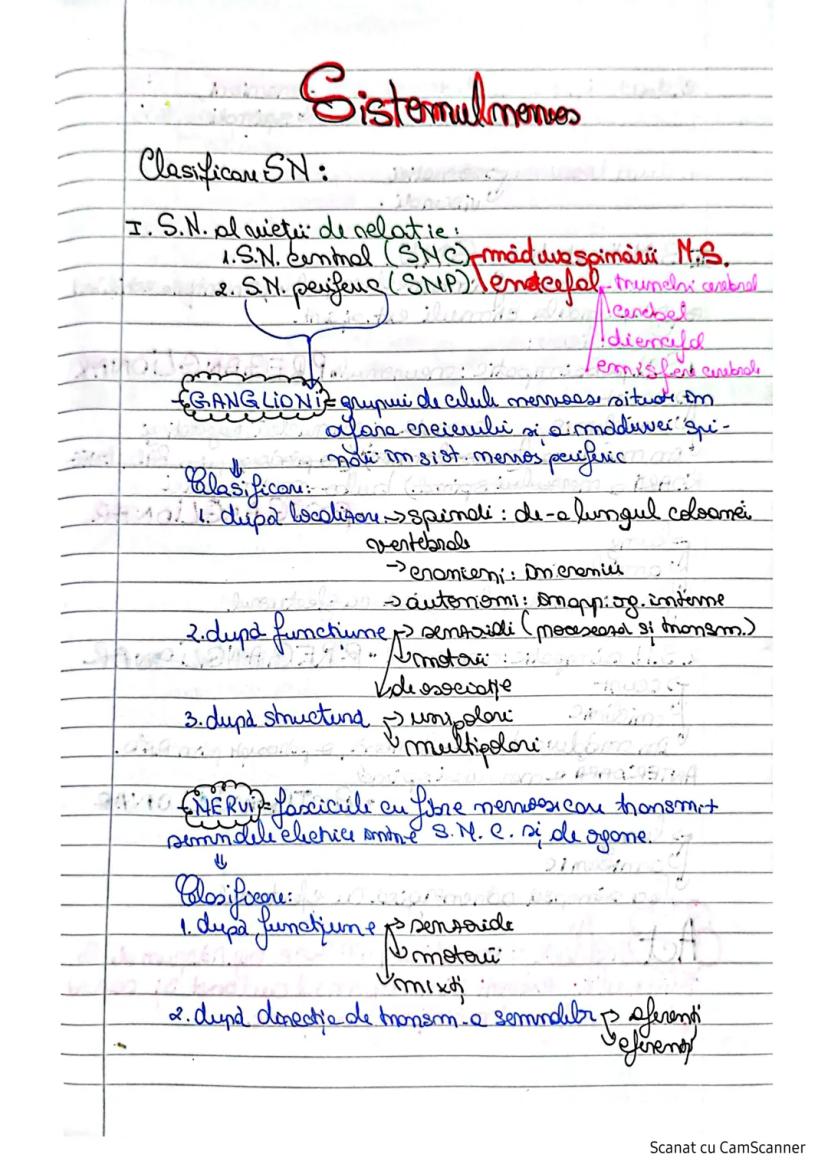 Sistemul nervos
Clasificare SN:
I. S.N. al vieții de relatie:
1. S.N. central (SNC) măduva spinării M.S.
2. S.N. periferic (SNP) encefal - trunchi cerebral
cerebel
diencefal
emisfere cerebrale
- GANGLIONI = grupuri de celule nervoase situate în
afara creierului si a măduvei spi-
nării în sist. nervos periferic
⇓
Clasificare:
1. după localizare → spinali: de-a lungul coloanei
vertebrale
→ cranieni: în craniu
→ autonomi: în app. og. interne
2. după functiune → senzoriali (procesează și transm.)
motorii
de asociație
3. după structură → unipolari
multipolari
- NERVI = fascicule cu fibre nervoase care transmit
semnalele electrice între S.N.C. și de ogane.
⇓
Clasificare:
1. după functiune → senzoriale
motorii
micști
2. după directia de transm. a semnalelor → aferenți
eferenți
Act
Scanat cu CamScanner